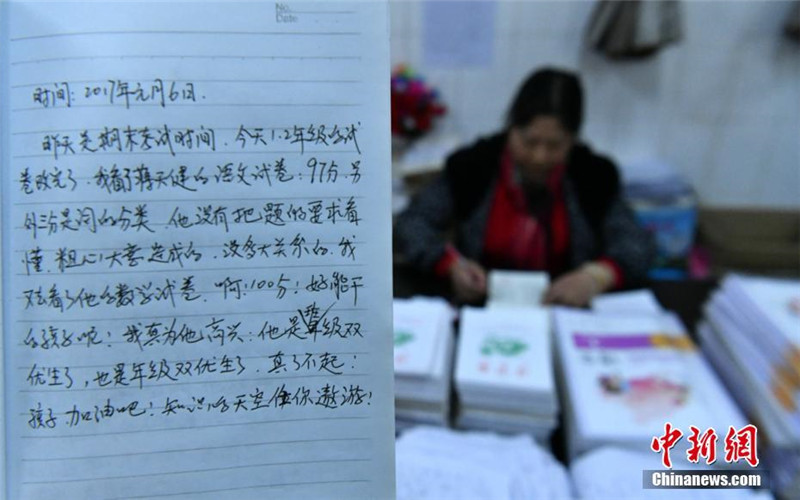 No.
Date
时间：2017年元月6日.
昨天是期末考试时间，今天1.2年级的试
卷改完了，我看了蒋天健的语文试卷：97分，另
外三分是词的分类，他没有把题的要求看
懂，粗心大意造成的，没多大关系的，我
又看了他的数学试卷，啊！100分！好能干
的孩子呢！我真为他高兴，他是班级双
优生了，也是年级双优生了，真了不起！
孩子，加油吧！知识的天空任你遨游！
中新网
Chinanews.com